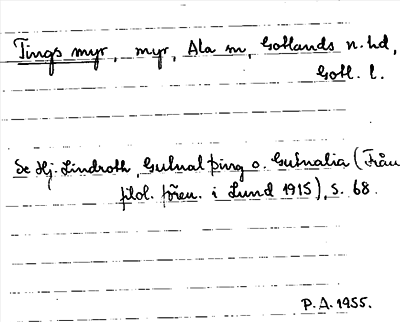 Tings myr, myr, Ala sn, Gotlands n. hd,
Gotl. l.
Se Hj. Lindroth, Gutnal þing o. Gutnalia (Från
filol. fören. i Lund 1915), s. 68.
P.A. 1955.